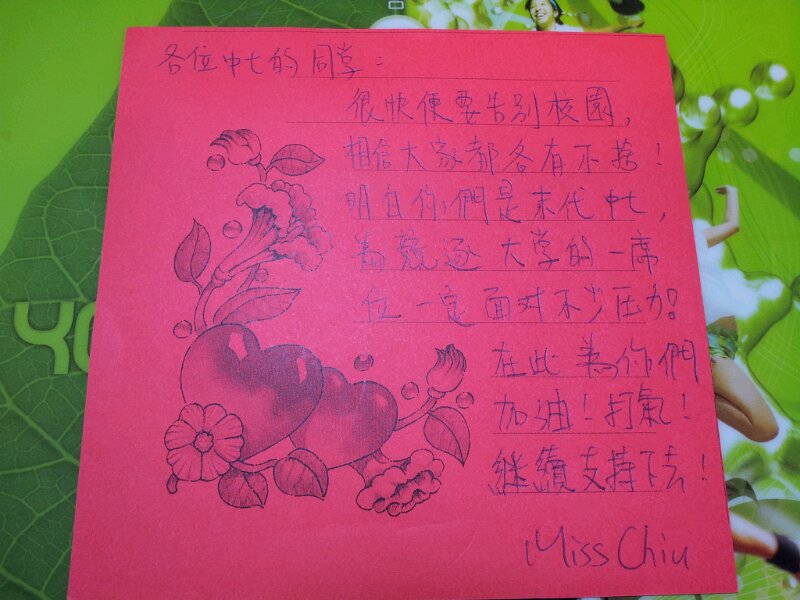 各位中七的同学：
很快便要告別校園，
相信大家都各有不捨！
明白你們是末代中七，
為競逐大学的一席
位一定面对不少压力？
在此為你們
加油！打氣！
継續支持下去！
Miss Chiu